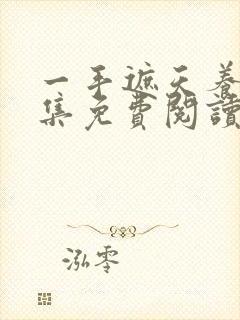 一手遮天養
集免費閱讀
泓零